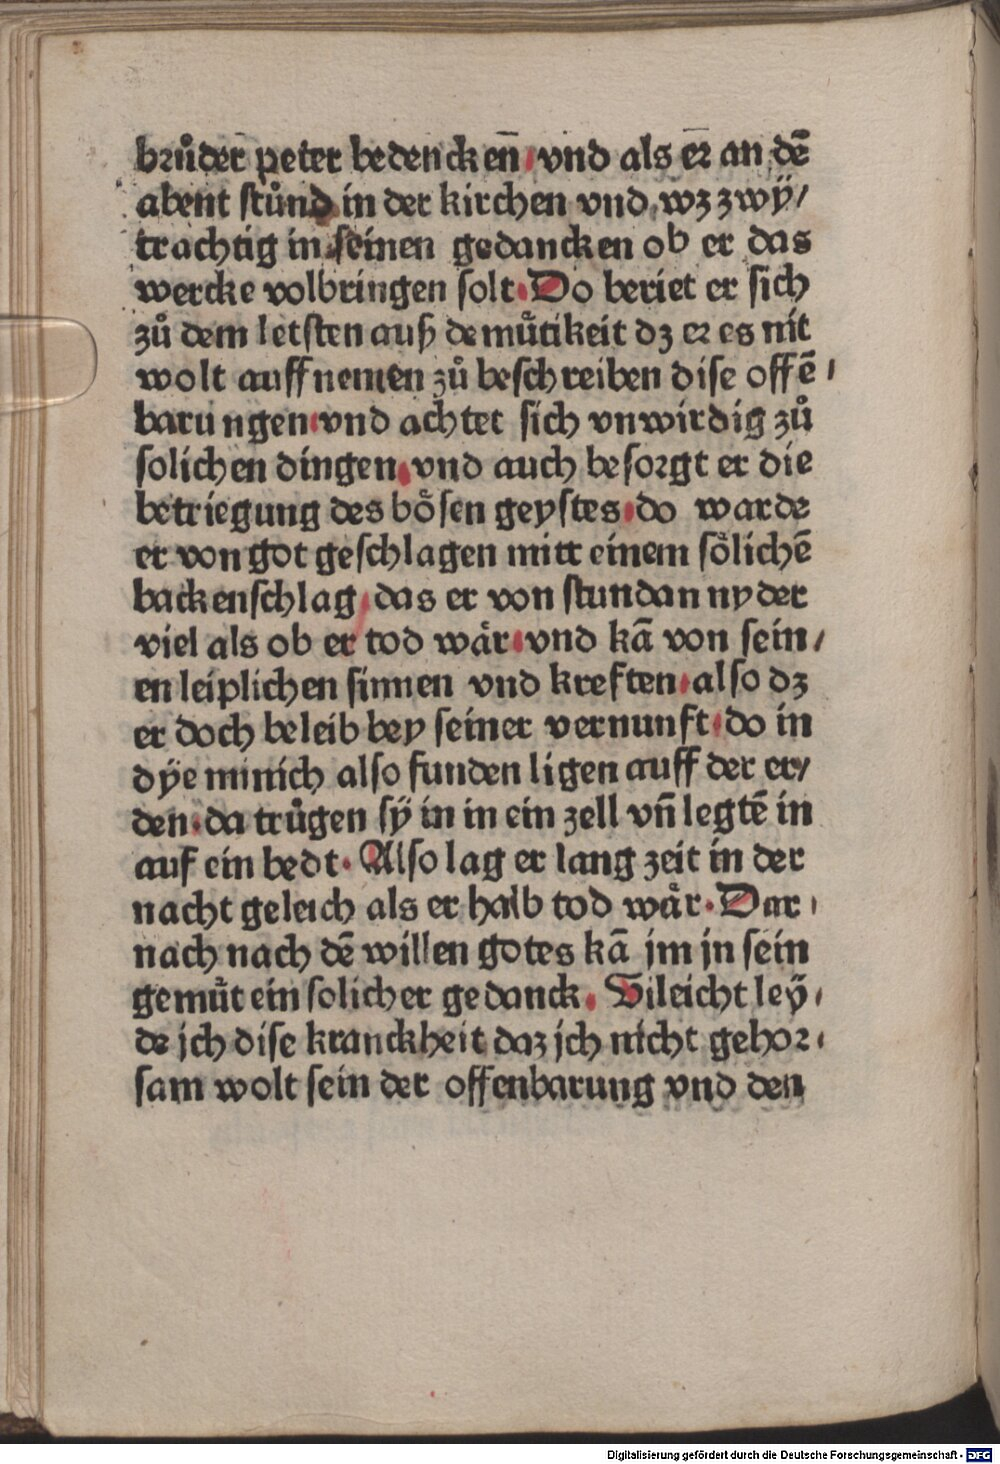 brůder peter bedencken̄ vnd als er an dē
abent stůnd in der kirchen vnd wz zwÿ/
trachtig in seinen gedancken ob er das
wercke volbringen solt. Do beriet er sich
zů dem letsten auß demůtikeit dz er es nit
wolt auffnemen zů beschreiben dise offē/
barungen vnd achtet sich vnwirdig zů
solichen dingen vnd auch besorgt er die
betriegung des boͤsen geystes do warde
er von got geschlagen mitt einem soͤlichē
backenschlag das er von stundan nyder
viel als ob er tod waͤr vnd kā von sein/
en leiplichen sinnen vnd kreften also dz
er doch beleib bey seiner vernunft do in
dÿe minich also funden ligen auff der er/
den. da trůgen sÿ in in ein zell vn̄ legtē in
auf ein bedt. Also lag er lang zeit in der
nacht geleich als er halb tod waͤr. Dar/
nach nach dē willen gotes kā jm jn sein
gemůt ein solicher gedanck. Vileicht leÿ/
de jch dise kranckheit daz jch nicht gehor/
sam wolt sein der offenbarung vnd den
Digitalisierung gefördert durch die Deutsche Forschungsgemeinschaft - DFG